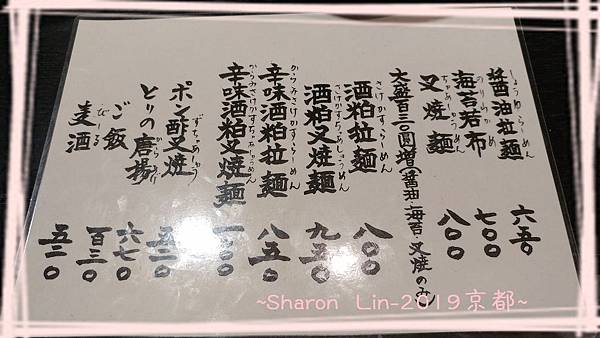 醤油拉麺 しょうゆらーめん 六五〇
海苔若布 のりわかめ 七〇〇
叉焼麺 ちゃーしゅうめん 八〇〇
大盛百三〇圓増(醤油、海苔、叉焼のみ)
酒粕拉麺 さけかすらーめん 八〇〇
酒粕叉焼麺 さけかすちゃあしゅうめん 九五〇
辛味酒粕拉麺 からみさけかすらーめん 八五〇
辛味酒粕叉焼麺 からみさけかすちゃあしゅうめん
ポン酢叉焼 ずちゃあしゅう 五二〇
とりの唐揚 からあげ 六七〇
ご飯 百三〇
麦酒 びーる 五二〇
~Sharon Lin-2019京都~